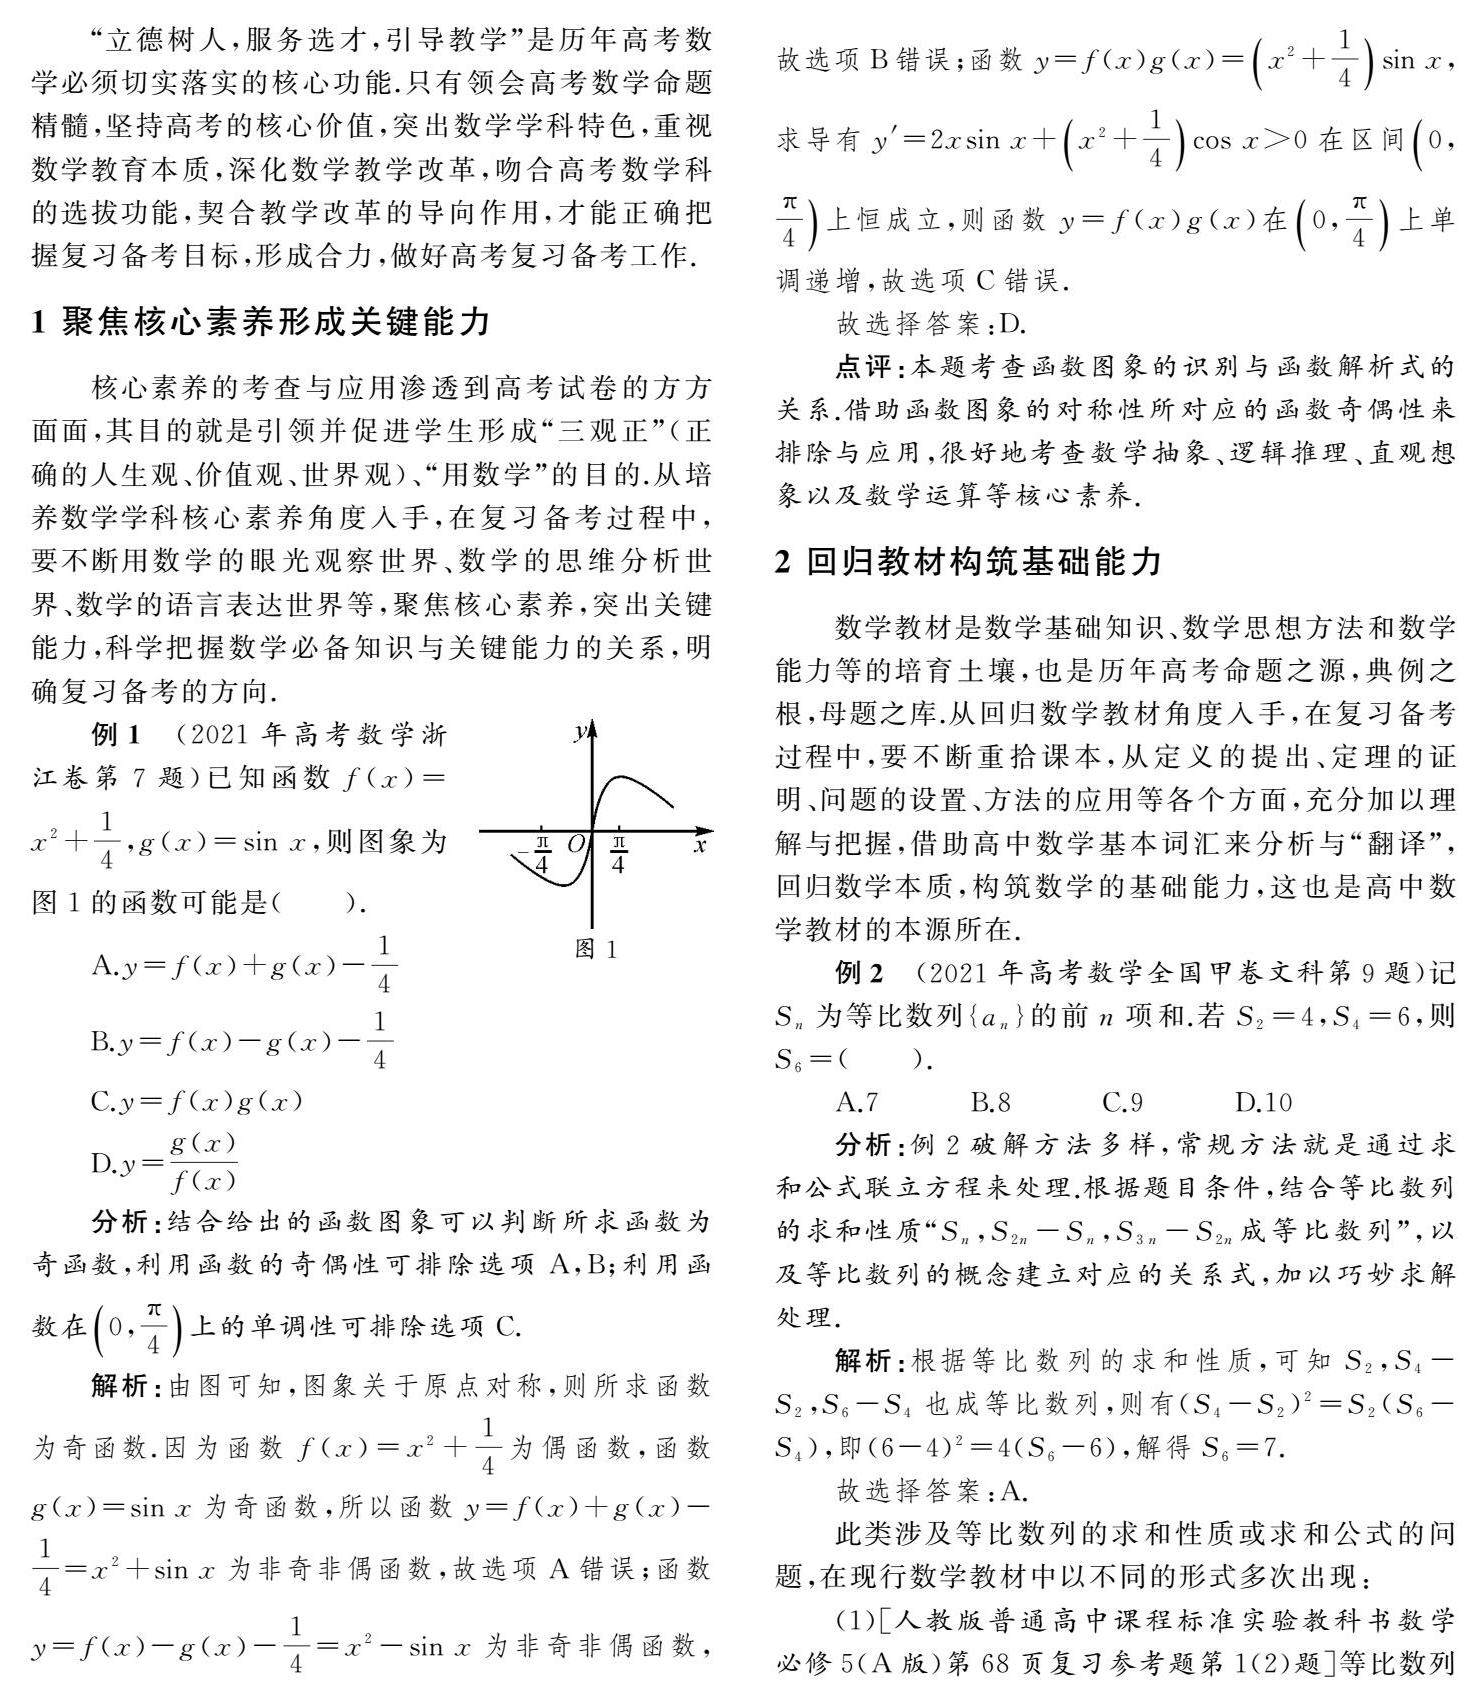 “立德树人,服务选才,引导教学”是历年高考数
学必须切实落实的核心功能.只有领会高考数学命题
精髓,坚持高考的核心价值,突出数学学科特色,重视
数学教育本质,深化数学教学改革,吻合高考数学科
的选拔功能,契合教学改革的导向作用,才能正确把
握复习备考目标,形成合力,做好高考复习备考工作.
1 聚焦核心素养形成关键能力
核心素养的考查与应用渗透到高考试卷的方方
面面,其目的就是引领并促进学生形成“三观正”(正
确的人生观、价值观、世界观)、“用数学”的目的.从培
养数学学科核心素养角度入手,在复习备考过程中,
要不断用数学的眼光观察世界、数学的思维分析世
界、数学的语言表达世界等,聚焦核心素养,突出关键
能力,科学把握数学必备知识与关键能力的关系,明
确复习备考的方向.
例1 (2021 年高考数学浙
江卷第 7 题)已知函数 f(x)=
x²+1/4,g(x)=sin x,则图象为
图1的函数可能是(  ).
y
-π/4 O π/4 x
图 1
A.y=f(x)+g(x)-1/4
B.y=f(x)-g(x)-1/4
C.y=f(x)g(x)
D.y=g(x)/f(x)
分析:结合给出的函数图象可以判断所求函数为
奇函数,利用函数的奇偶性可排除选项 A,B;利用函
数在(0,π/4)上的单调性可排除选项 C.
解析:由图可知,图象关于原点对称,则所求函数
为奇函数.因为函数 f(x)=x²+1/4为偶函数,函数
g(x)=sin x 为奇函数,所以函数 y=f(x)+g(x)-
1/4=x²+sin x 为非奇非偶函数,故选项 A 错误;函数
y=f(x)-g(x)-1/4=x²-sin x 为非奇非偶函数,
故选项B错误;函数 y=f(x)g(x)=(x²+1/4)sin x,
求导有 y′=2xsin x+(x²+1/4)cos x>0 在区间(0,
π/4)上恒成立,则函数 y=f(x)g(x)在(0,π/4)上单
调递增,故选项 C 错误.
故选择答案:D.
点评:本题考查函数图象的识别与函数解析式的
关系.借助函数图象的对称性所对应的函数奇偶性来
排除与应用,很好地考查数学抽象、逻辑推理、直观想
象以及数学运算等核心素养.
2 回归教材构筑基础能力
数学教材是数学基础知识、数学思想方法和数学
能力等的培育土壤,也是历年高考命题之源,典例之
根,母题之库.从回归数学教材角度入手,在复习备考
过程中,要不断重拾课本,从定义的提出、定理的证
明、问题的设置、方法的应用等各个方面,充分加以理
解与把握,借助高中数学基本词汇来分析与“翻译”,
回归数学本质,构筑数学的基础能力,这也是高中数
学教材的本源所在.
例2 (2021年高考数学全国甲卷文科第9题)记
Sₙ 为等比数列{aₙ}的前 n 项和.若 S₂=4,S₄=6,则
S₆=(  ).
A.7 B.8 C.9 D.10
分析:例 2 破解方法多样,常规方法就是通过求
和公式联立方程来处理.根据题目条件,结合等比数列
的求和性质“Sₙ,S₂ₙ-Sₙ,S₃ₙ-S₂ₙ成等比数列”,以
及等比数列的概念建立对应的关系式,加以巧妙求解
处理.
解析:根据等比数列的求和性质,可知 S₂,S₄-
S₂,S₆-S₄ 也成等比数列,则有(S₄-S₂)²=S₂(S₆-
S₄),即(6-4)²=4(S₆-6),解得 S₆=7.
故选择答案:A.
此类涉及等比数列的求和性质或求和公式的问
题,在现行数学教材中以不同的形式多次出现:
(1)[人教版普通高中课程标准实验教科书数学
必修5(A版)第68页复习参考题第1(2)题]等比数列